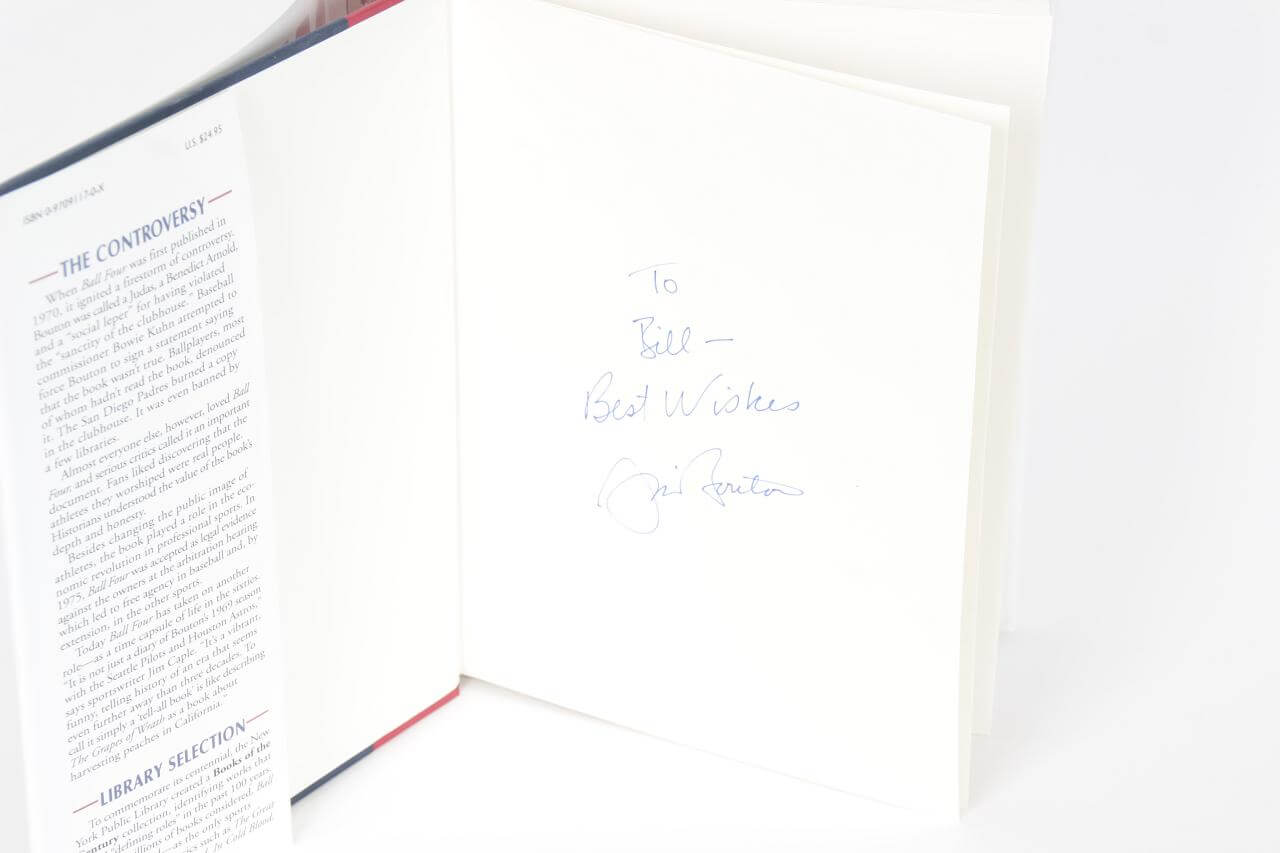 U.S. $24.95
ISBN 0-9709117-0-X
THE CONTROVERSY
When Ball Four was first published in
1970, it ignited a firestorm of controversy.
Bouton was called a Judas, a Benedict Arnold,
and a "social leper" for having violated
the "sanctity of the clubhouse." Baseball
commissioner Bowie Kuhn attempted to
force Bouton to sign a statement saying
that the book wasn't true. Ballplayers, most
of whom hadn't read the book, denounced
it. The San Diego Padres burned a copy
in the clubhouse. It was even banned by
a few libraries.
Almost everyone else, however, loved Ball
Four, and serious critics called it an important
document. Fans liked discovering that the
athletes they worshiped were real people.
Historians understood the value of the book's
depth and honesty.
Besides changing the public image of
athletes, the book played a role in the eco-
nomic revolution in professional sports. In
1975, Ball Four was accepted as legal evidence
against the owners at the arbitration hearing
which led to free agency in baseball and, by
extension, in the other sports.
Today Ball Four has taken on another
role—as a time capsule of life in the sixties.
"It is not just a diary of Bouton's 1969 season
with the Seattle Pilots and Houston Astros,"
says sportswriter Jim Caple. "It's a vibrant,
funny, telling history of an era that seems
even further away than three decades. To
call it simply a 'tell-all book' is like describing
The Grapes of Wrath as a book about
harvesting peaches in California."
LIBRARY SELECTION
To commemorate its centennial, the New
York Public Library created a Books of the
Century collection, identifying works that
"defining roles" in the past 100 years.
of books considered, Ball
as the only sports
such as The Great
In Cold Blood.
To
Bill —
Best Wishes
Jim Bouton